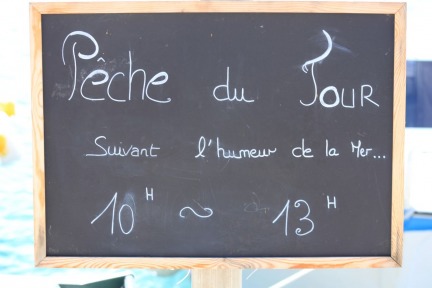 Pêche du Jour
Suivant l'humeur de la Mer...
10H ~ 13H